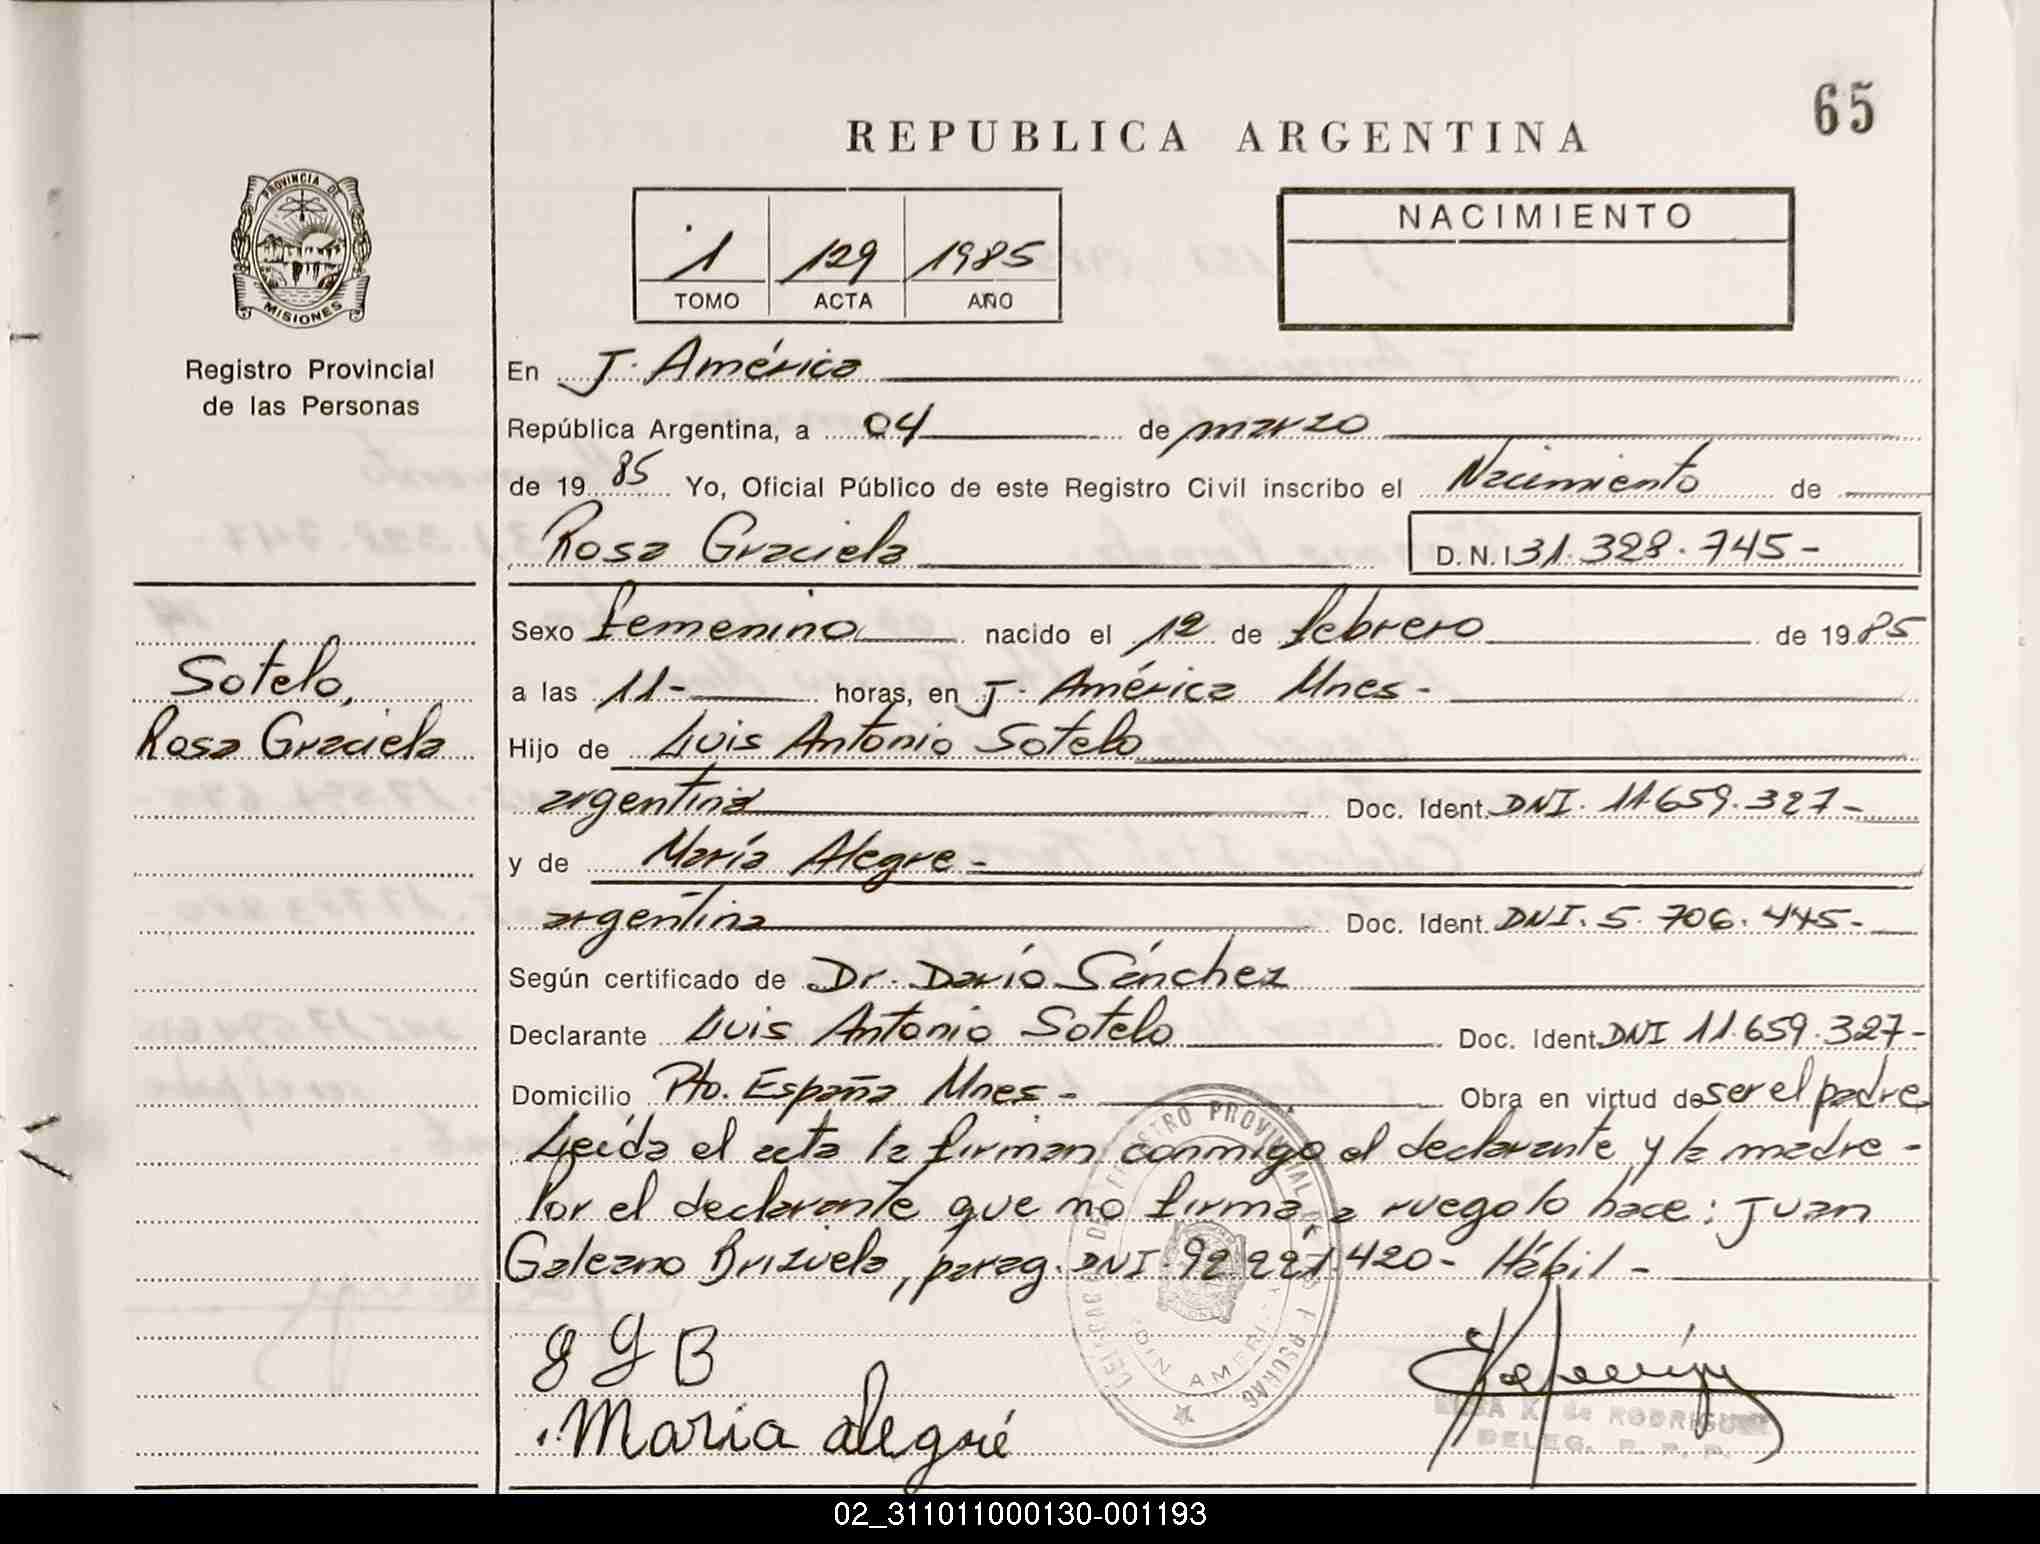 65
REPUBLICA ARGENTINA
PROVINCIA DE
MISIONES
1 129 1985
TOMO ACTA AÑO
NACIMIENTO
Registro Provincial
de las Personas
En J. América
República Argentina, a 04 de marzo
de 1985 Yo, Oficial Público de este Registro Civil inscribo el Nacimiento de
Rosa Graciela D.N.I 31.328.745-
Sexo femenino nacido el 12 de febrero de 1985
Sotelo,
a las 11- horas, en J. América Mnes-
Rosa Graciela
Hijo de Luis Antonio Sotelo
argentina Doc. Ident. DNI. 11.659.327-
y de María Alegre-
argentina Doc. Ident. DNI. 5.706.445-
Según certificado de Dr. Darío Sánchez
Declarante Luis Antonio Sotelo Doc. Ident. DNI 11.659.327-
Domicilio Pto. España Mnes- Obra en virtud de ser el padre
Leída el acta la firman conmigo el declarante y la madre-
Por el declarante que no firma a ruego lo hace: Juan
Galeano Brizuela, parag. DNI. 92.221.420- Hábil-
J G B
Maria alegré
ELSA K. de RODRIGUEZ
DELEG. R. P. P.
02_311011000130-001193